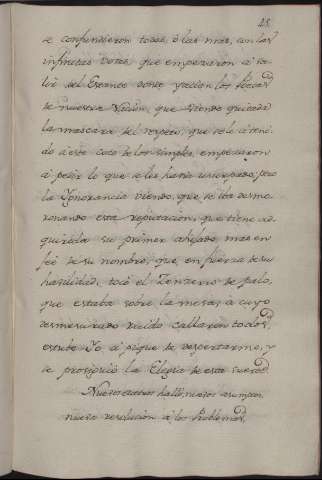 28
se confundieron todas, ò las más, con las
infinitas voces que empezaron à sa-
lir del Estante donde yacían los Poetas
de nuestra Nación, que viendo quitada
la mascara del respeto, que solo à teni-
do à este coro de los simples, empezaron
à pedir lo que se les havía usurpado; pero
la Ygnorancia viendo, que se iba desmo-
ronando esta reputacion, que tiene ad-
quirida su primer ahijado, mas en
feè de su nombre, que en fuerza de su
habilidad, tocó el Zenzerro de palo,
que estaba sobre la mesa; à cuyo
desmesurado ruido callaron todos,
estube Yo à pique de despertarme, y
se prosiguió la Elegia de esta suerte.
Nuevo teatro halló, nuevo
nueva resolucion à los Problemas.